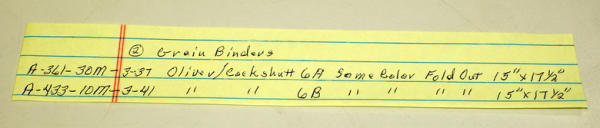 ② Grain Binders
A-361-30M-3-37 Oliver/Cockshutt 6A Same Color Fold Out 15"x17½"
A-433-10M-3-41 " " 6B " " " " 15"x17½"